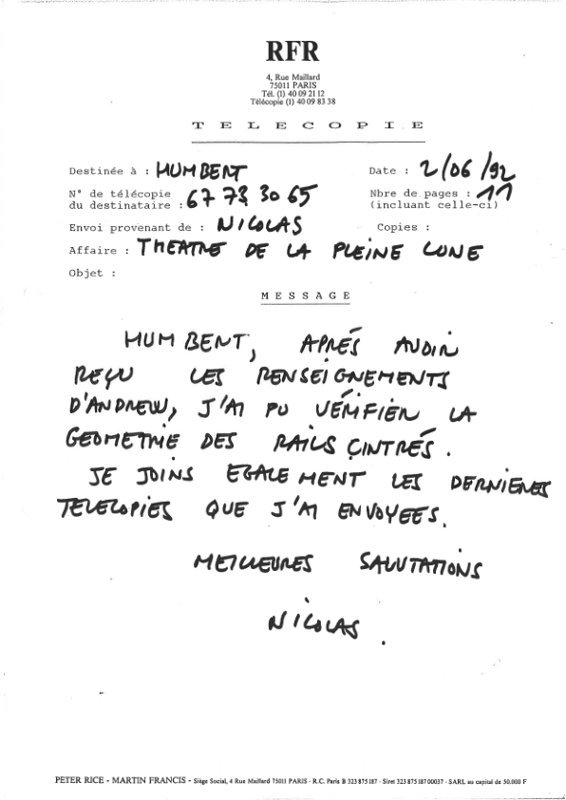 RFR
4, Rue Maillard
75011 PARIS
Tél. (1) 40 09 21 12
Télécopie (1) 40 09 83 38
TELECOPIE
Destinée à : HUMBERT
Date : 2/06/92
N° de télécopie
du destinataire : 67 73 30 65
Nbre de pages : 11
(incluant celle-ci)
Envoi provenant de : NICOLAS
Copies :
Affaire : THEATRE DE LA PLEINE LUNE
Objet :
MESSAGE
HUMBERT, APRÉS AVOIR
REÇU LES RENSEIGNEMENTS
D'ANDREW, J'AI PU VÉRIFIER LA
GEOMETRIE DES RAILS ÇINTRÉS.
JE JOINS EGALEMENT LES DERNIERES
TELECOPIES QUE J'AI ENVOYEES.
MEILLEURES SALUTATIONS
NICOLAS.
PETER RICE - MARTIN FRANCIS - Siège Social, 4 Rue Maillard 75011 PARIS - R.C. Paris B 323 875 187 - Siret 323 875 187 00037 - SARL au capital de 50.000 F